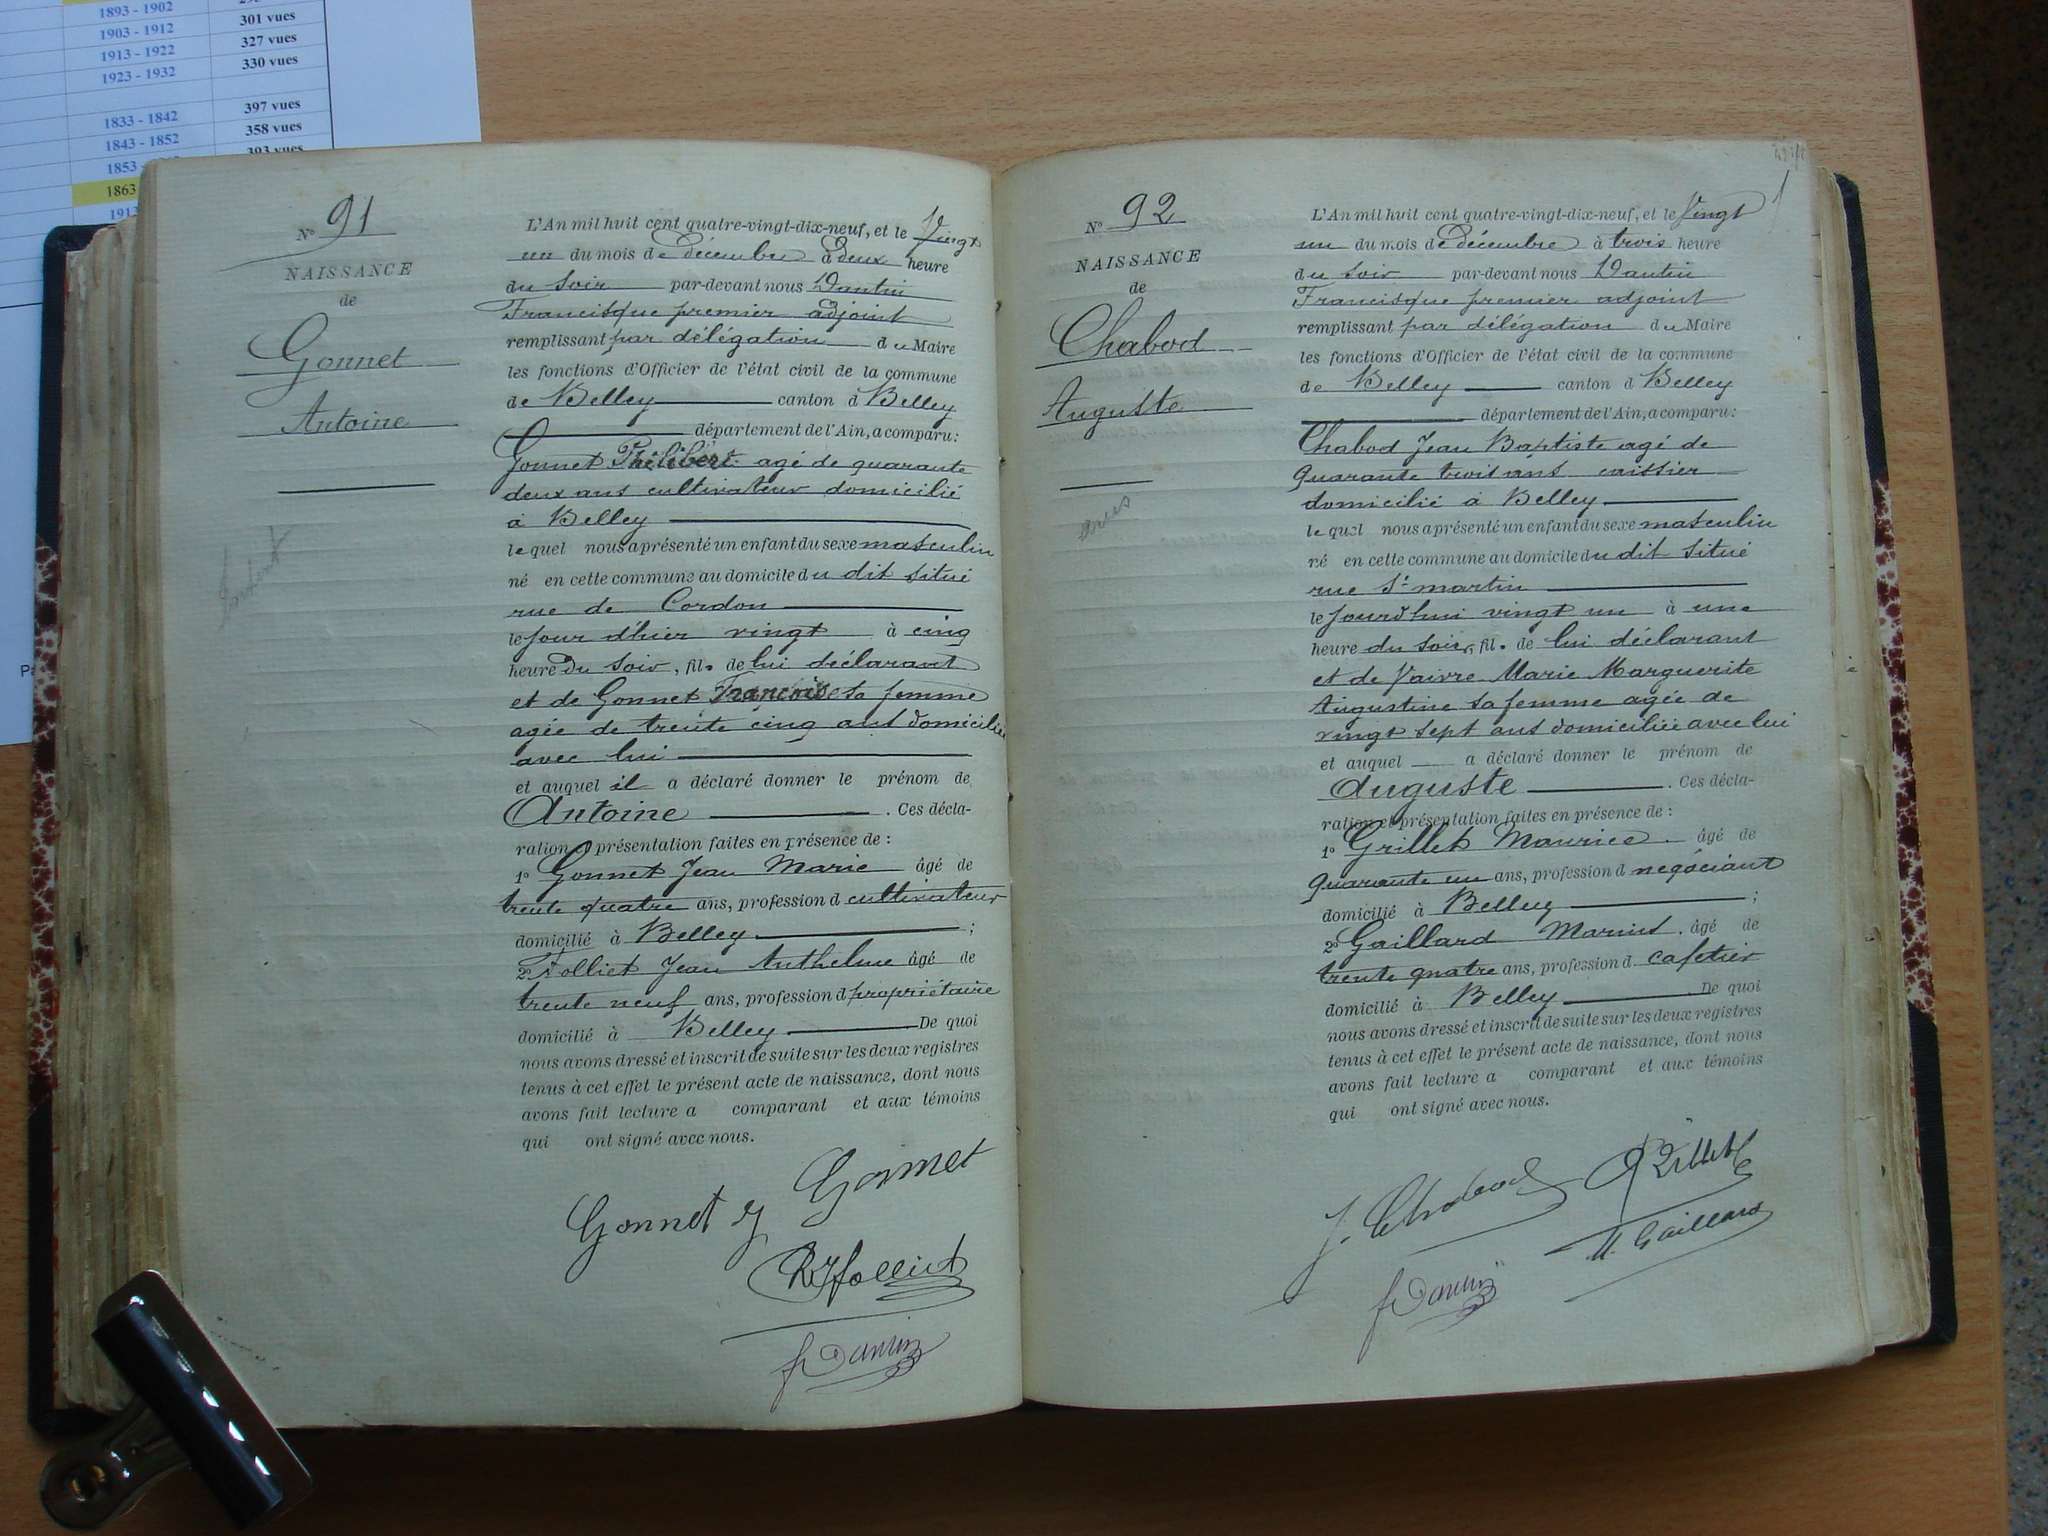 1893 - 1902
1903 - 1912 301 vues
1913 - 1922 327 vues
1923 - 1932 330 vues
1833 - 1842 397 vues
1843 - 1852 358 vues
1853 - 393 vues
1863
191
N° 91
NAISSANCE
de
Gonnet
Antoine
L'An mil huit cent quatre-vingt-dix-neuf, et le Vingt
un du mois de décembre à deux heure
du soir par-devant nous Dantin
Francisque premier adjoint
remplissant par délégation du Maire
les fonctions d'Officier de l'état civil de la commune
de Belley canton d Belley
département de l'Ain, a comparu:
Gonnet Philibert agé de quarante
deux ans cultivateur domicilié
à Belley
le quel nous a présenté un enfant du sexe masculin
né en cette commune au domicile du dit situé
rue de Cordon
le jour d'hier vingt à cinq
heure du soir, fils de lui déclarant
et de Gonnet Françoise sa femme
agée de trente cinq ans domiciliée
avec lui
et auquel il a déclaré donner le prénom de
Antoine . Ces décla-
ration et présentation faites en présence de :
1° Gonnet Jean Marie âgé de
trente quatre ans, profession d cultivateur
domicilié à Belley ;
2° Folliet Jean Anthelme âgé de
trente neuf ans, profession d propriétaire
domicilié à Belley De quoi
nous avons dressé et inscrit de suite sur les deux registres
tenus à cet effet le présent acte de naissance, dont nous
avons fait lecture a comparant et aux témoins
qui ont signé avec nous.
Gonnet
Gonnet J
Folliet
F Dantin
N° 92
NAISSANCE
de
Chabod
Auguste
L'An mil huit cent quatre-vingt-dix-neuf, et le Vingt
un du mois de décembre à trois heure
du soir par-devant nous Dantin
Francisque premier adjoint
remplissant par délégation du Maire
les fonctions d'Officier de l'état civil de la commune
de Belley canton d Belley
département de l'Ain, a comparu:
Chabod Jean Baptiste agé de
quarante trois ans caissier
domicilié à Belley
le quel nous a présenté un enfant du sexe masculin
né en cette commune au domicile du dit situé
rue St martin
le jourd'hui vingt un à une
heure du soir, fils de lui déclarant
et de Vaivre Marie Marguerite
Augustine sa femme agée de
vingt sept ans domiciliée avec lui
et auquel a déclaré donner le prénom de
Auguste . Ces décla-
ration et présentation faites en présence de :
1° Grillet Maurice âgé de
quarante un ans, profession d négociant
domicilié à Belley ;
2° Gaillard Marius, âgé de
trente quatre ans, profession d cafetier
domicilié à Belley De quoi
nous avons dressé et inscrit de suite sur les deux registres
tenus à cet effet le présent acte de naissance, dont nous
avons fait lecture a comparant et aux témoins
qui ont signé avec nous.
J. Chabod Grillet
M. Gaillard
F Dantin